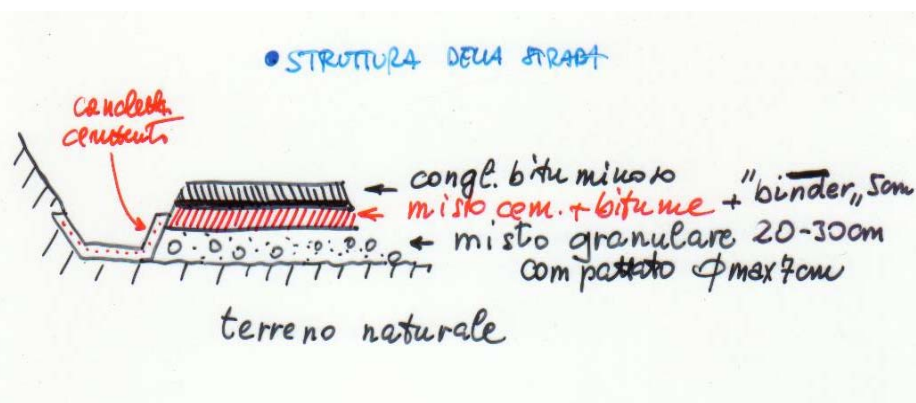 • STRUTTURA DELLA STRADA
canaletta
cemento
congl. bituminoso
misto cem. + bitume + "binder„ 5cm
misto granulare 20-30cm
compattato ϕ max 7cm
terreno naturale